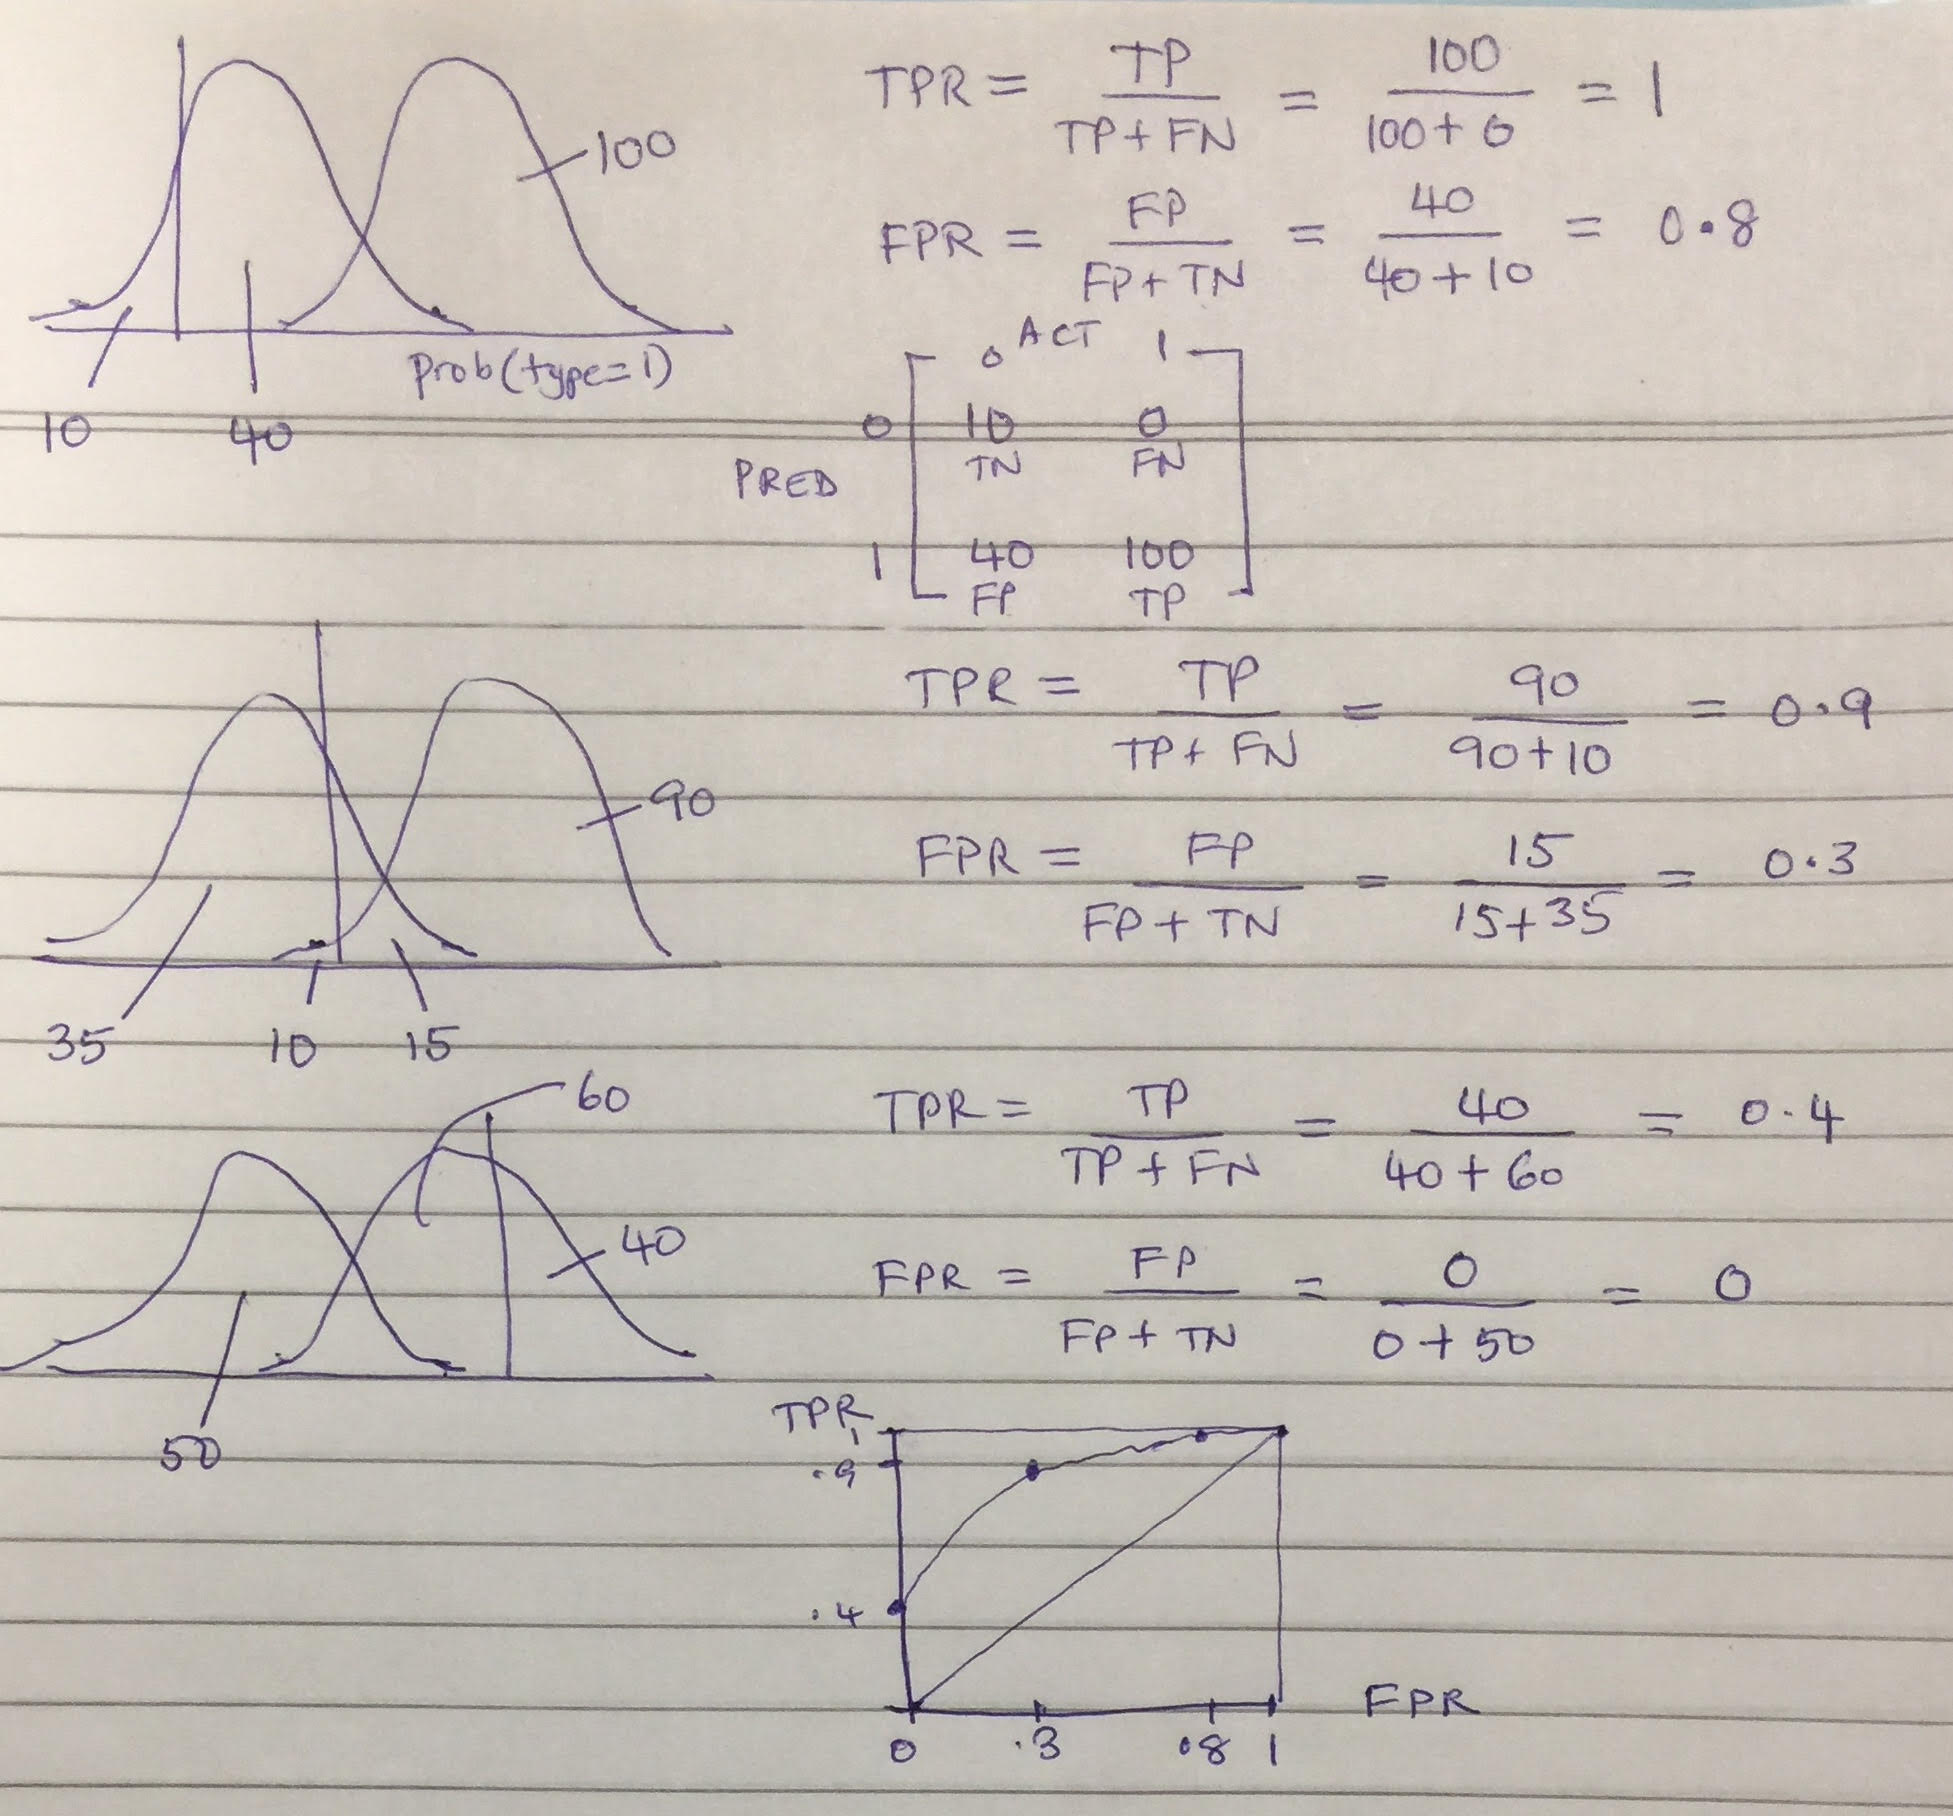 TPR = TP / TP + FN = 100 / 100 + 0 = 1
100
FPR = FP / FP + TN = 40 / 40 + 10 = 0.8
prob(type=1)
10 40
ACT
0 1
PRED
0 10 0
TN FN
1 40 100
FP TP
TPR = TP / TP + FN = 90 / 90 + 10 = 0.9
90
FPR = FP / FP + TN = 15 / 15 + 35 = 0.3
35 10 15
60
TPR = TP / TP + FN = 40 / 40 + 60 = 0.4
40
FPR = FP / FP + TN = 0 / 0 + 50 = 0
50
TPR
1
.9
.4
0 .3 .8 1
FPR